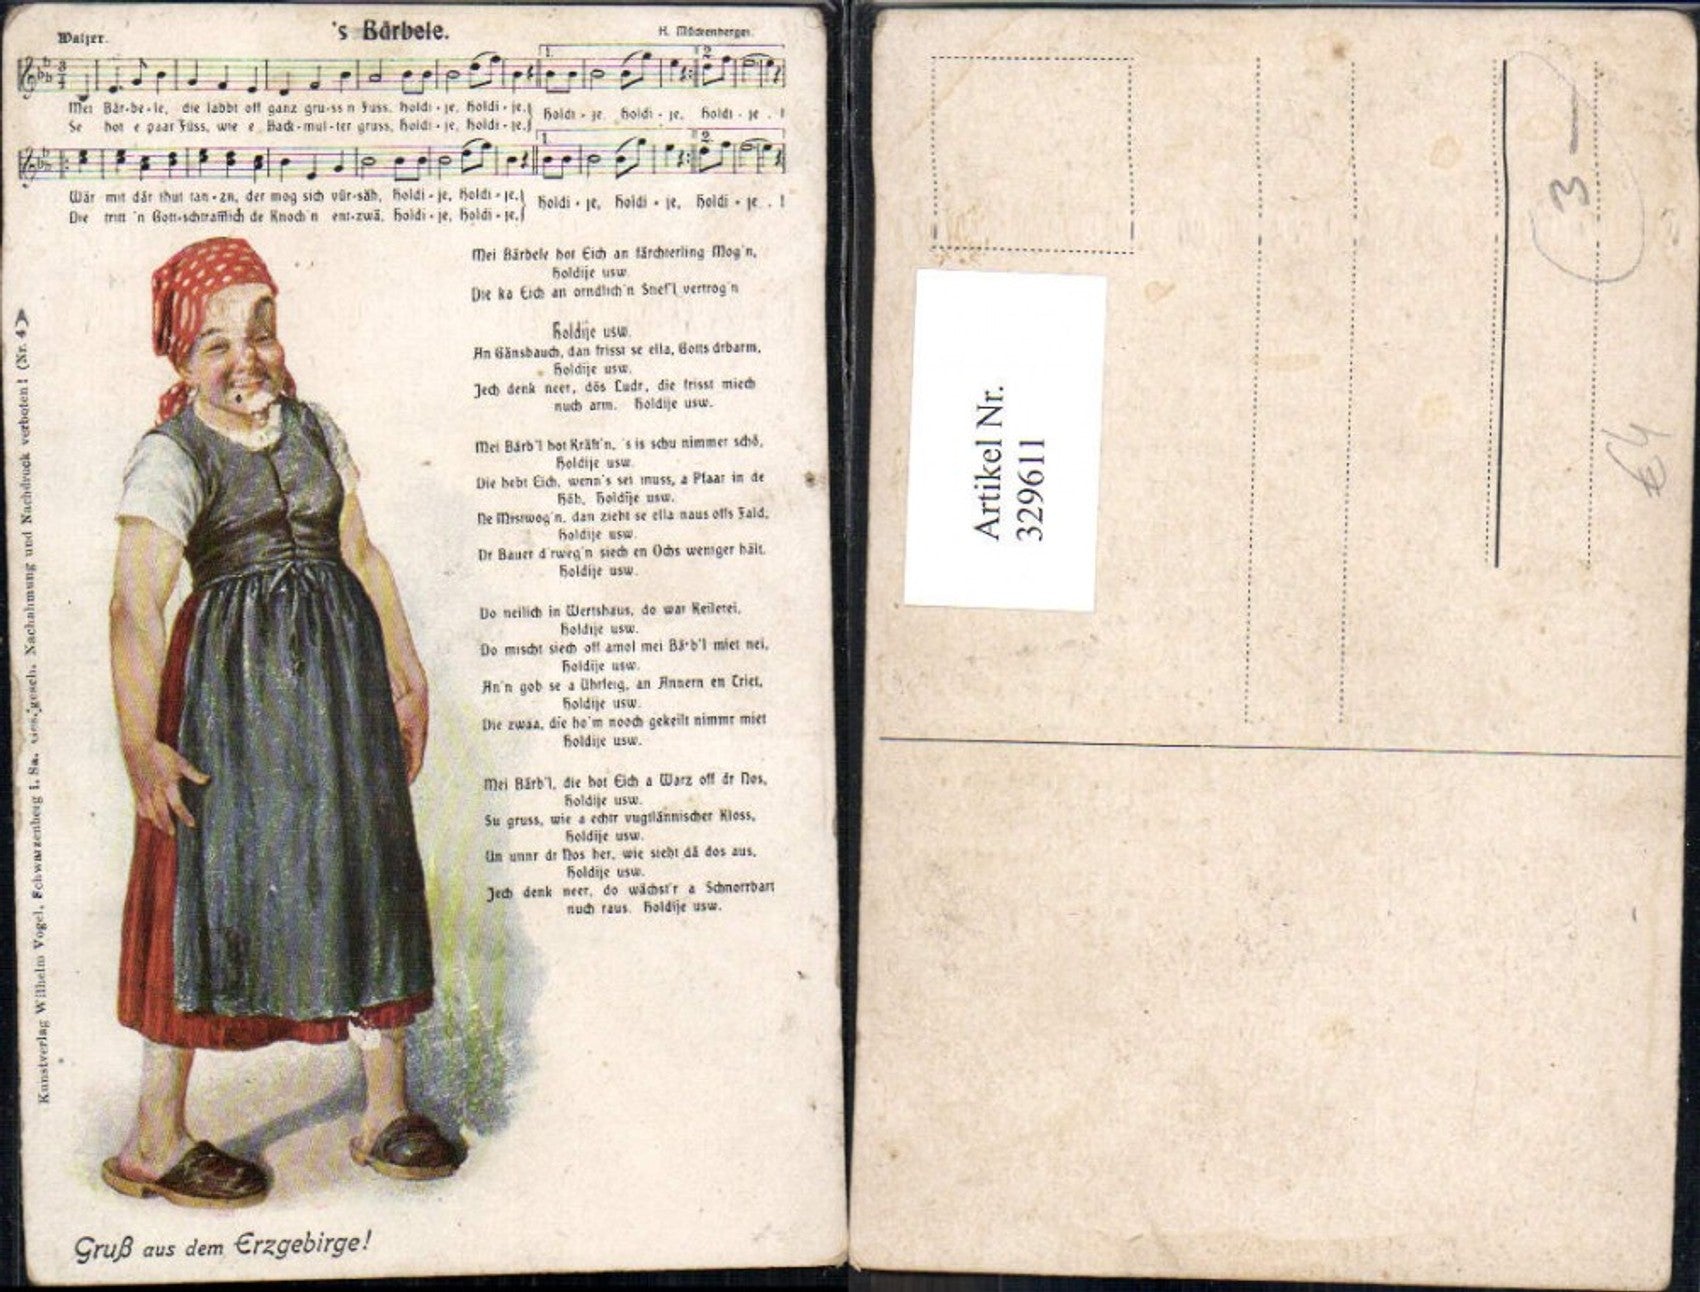 Walzer.
's Bärbele.
H. Möckenberger.
1.
2.
Mei Bär-be-le, die labbt off ganz gru-ss'n Fuss, holdi-je, holdi-je, holdi-je, holdi-je, holdi-je.!
Se hot e paar Füss, wie e Back-mul-ter gruss, holdi-je, holdi-je,
1.
2.
Wär mit där thut tan-zn, der mog sich vür-säh, holdi-je, holdi-je, holdi-je, holdi-je, holdi-je.!
Die tritt 'n Gott-schtrafflich de Knoch'n ent-zwä, holdi-je, holdi-je,
Mei Bärbele hot Eich an färchterling Mog'n,
holdije usw.
Die ka Eich an orndlich'n Stief'l vertrog'n
holdije usw.
An Gänsbauch, dan frisst se ella, Gotts drbarm,
holdije usw.
Jech denk neer, dös Ludr, die frisst miech
nuch arm. holdije usw.
Mei Bärb'l hot Kräft'n, 's is schu nimmer schö,
holdije usw.
Die hebt Eich, wenn's sei muss, a Pfaar in de
Höh, holdije usw.
Ne Mistwog'n, dan zieht se ella naus offs Fald,
holdije usw.
Dr Bauer d'rweg'n siech en Ochs weniger hält.
holdije usw.
Do neilich in Wertshaus, do war Keilerei,
holdije usw.
Do mischt siech off amol mei Bärb'l miet nei,
holdije usw.
An'n gob se a Uhrfeig, an Annern en Triet,
holdije usw.
Die zwaa, die ho'm nooch gekeilt nimmr miet
holdije usw.
Mei Bärb'l, die hot Eich a Warz off dr Nos,
holdije usw.
Su gruss, wie a echtr vugtlännischer Kloss,
holdije usw.
Un unnr dr Nos her, wie sieht dä dos aus,
holdije usw.
Jech denk neer, do wächst'r a Schnorrbart
nuch raus. holdije usw.
Kunstverlag Wilhelm Vogel, Schwarzenberg i. Sa. ges. gesch. Nachahmung und Nachdruck verboten! (Nr. 4)
Gruß aus dem Erzgebirge!
Artikel Nr.
329611
3 —
€4